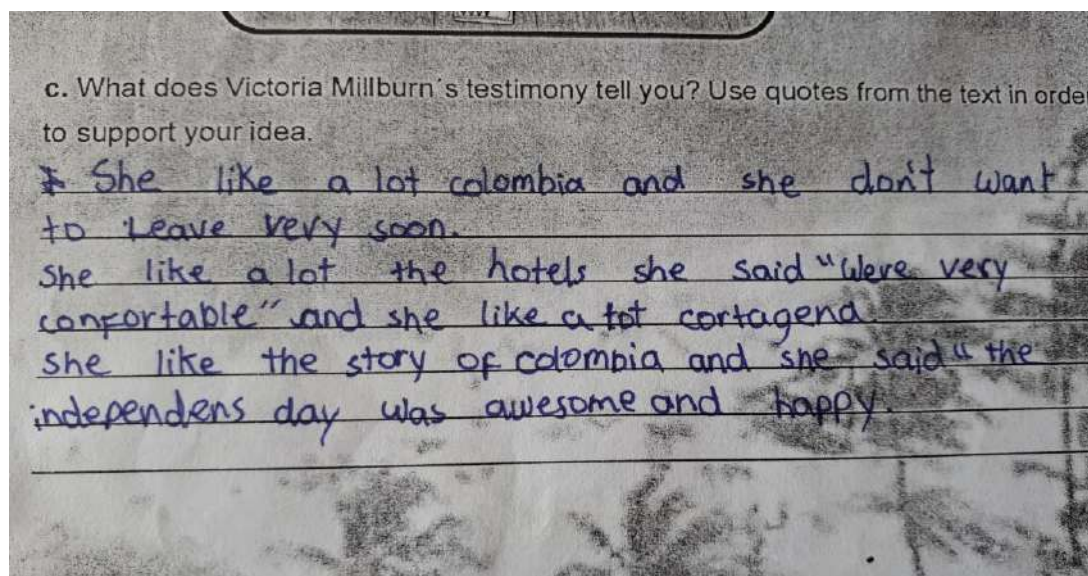 c. What does Victoria Millburn´s testimony tell you? Use quotes from the text in order
to support your idea.
She like a lot colombia and she don't want
to Leave very soon.
She like a lot the hotels she said "Were very
confortable" and she like a lot cortagena.
she like the story of colombia and she said "the
independens day was awesome and happy.